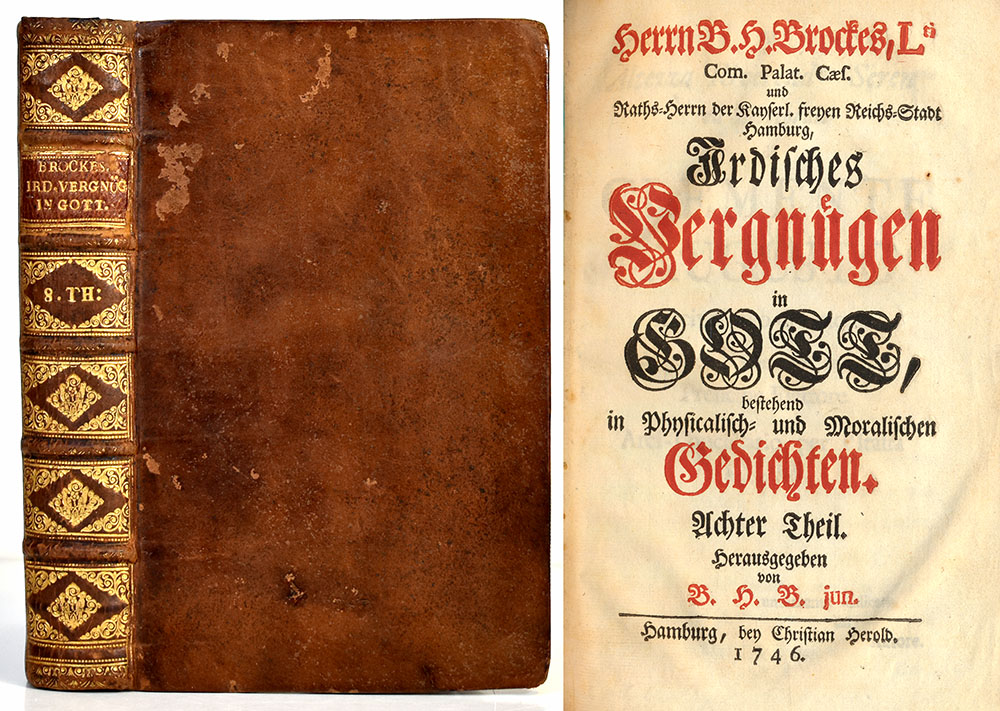 BROCKES.
IRD. VERGNÜG
IN GOTT.
8. TH:
Herrn B. H. Brockes, Lti
Com. Palat. Cæſ.
und
Raths-Herrn der Kayſerl. freyen Reichs-Stadt
Hamburg,
Irdiſches
Vergnuͤgen
in
GOTT,
beſtehend
in Phyſicaliſch- und Moraliſchen
Gedichten.
Achter Theil.
Herausgegeben
von
B. H. B. jun.
Hamburg, bey Chriſtian Herold.
1746.